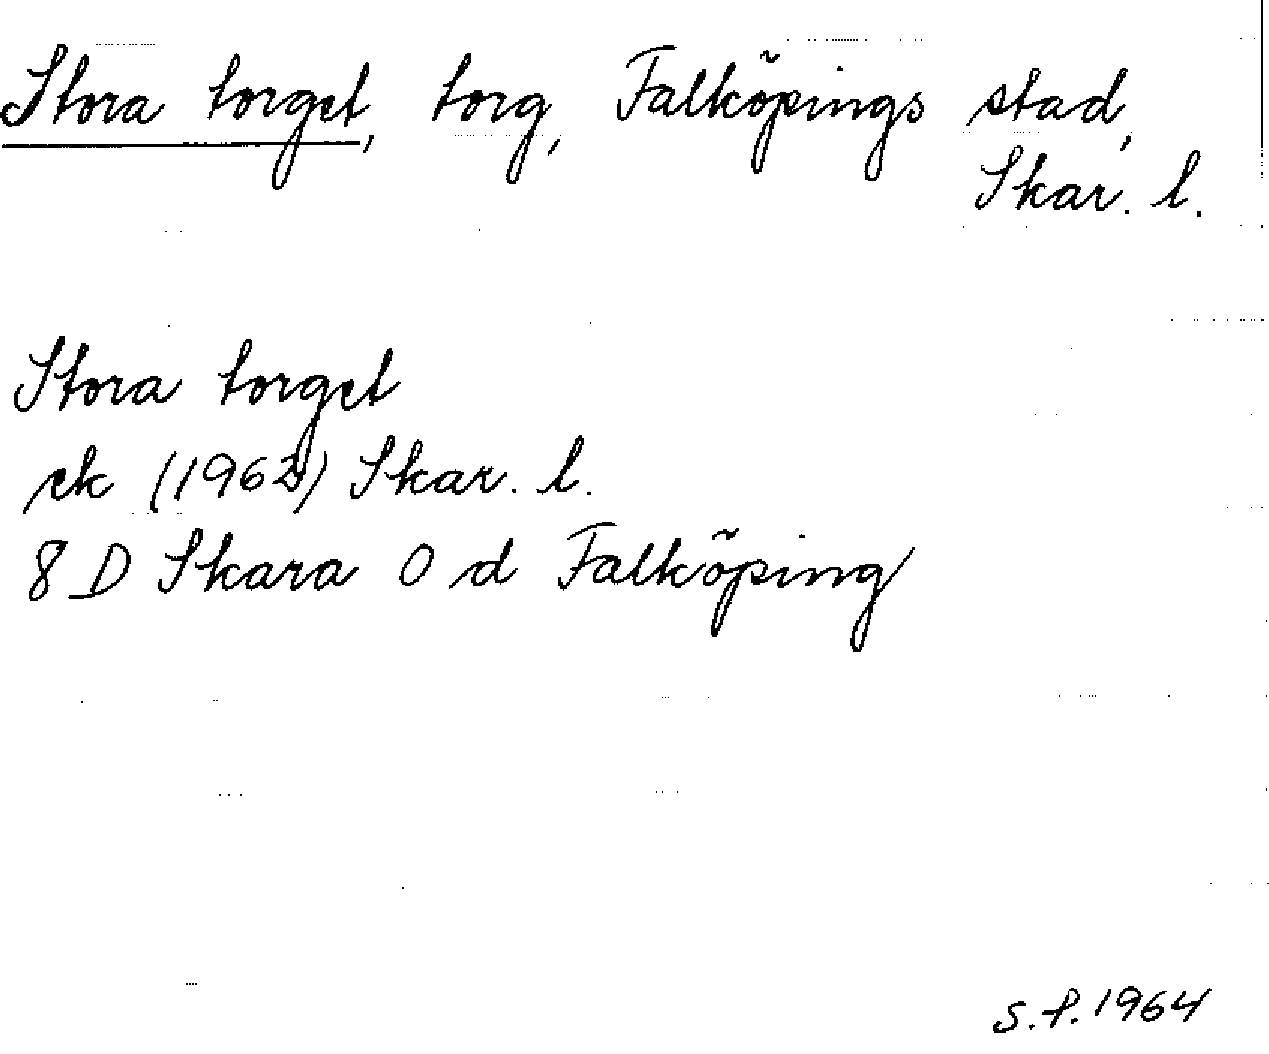 Stora torget, torg, Falköpings stad,
Skar. l.
Stora torget
ek (1962) Skar. l.
8 D Skara 0 d Falköping
S.P. 1964